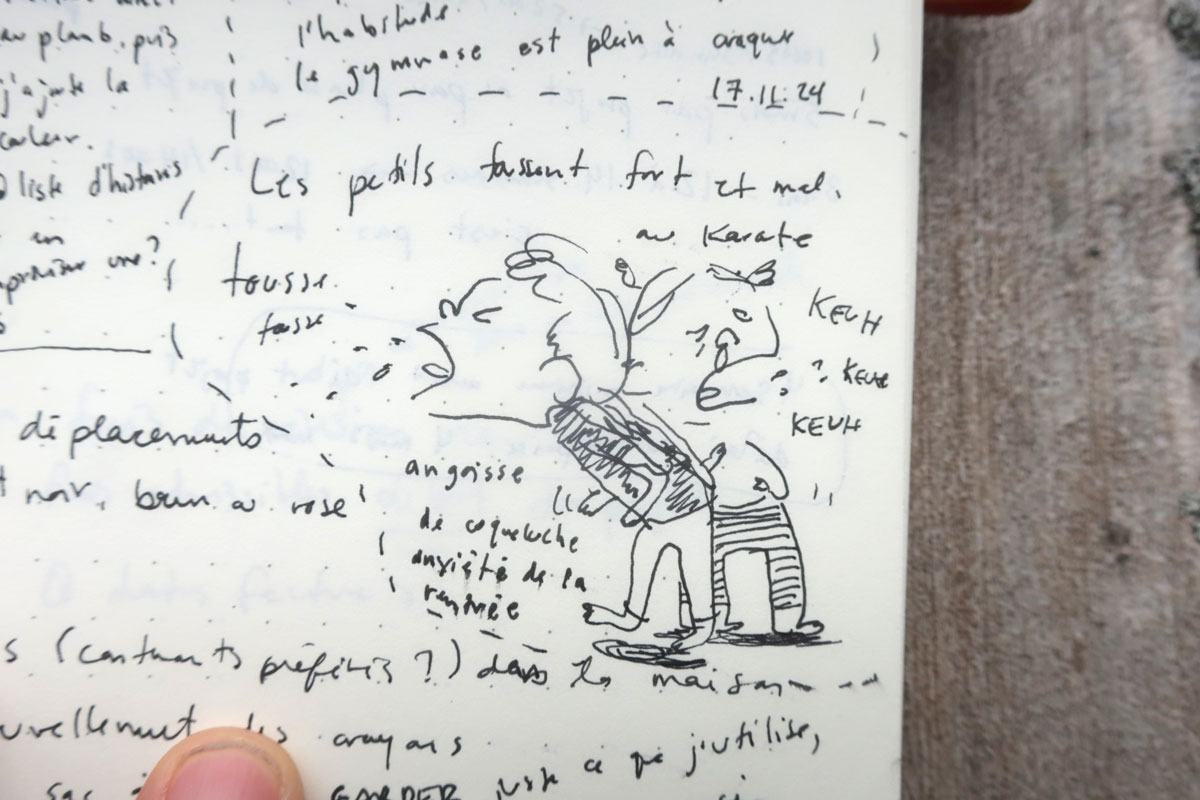 au plomb. puis
j'ajoute la
couleur.
liste d'histoires
en
une?
l'habitude
le gymnase est plein à craquer
17.11.24
Les petits toussent fort et mal.
au Karate
tousse
tousse
KEUH
KEUH
KEUH
angoisse
de coqueluche
anxiété de la
rentrée
déplacements
noir, brun à rose
(contenants préférés?) dans la maison
des crayons
GARDER juste ce que j'utilise,